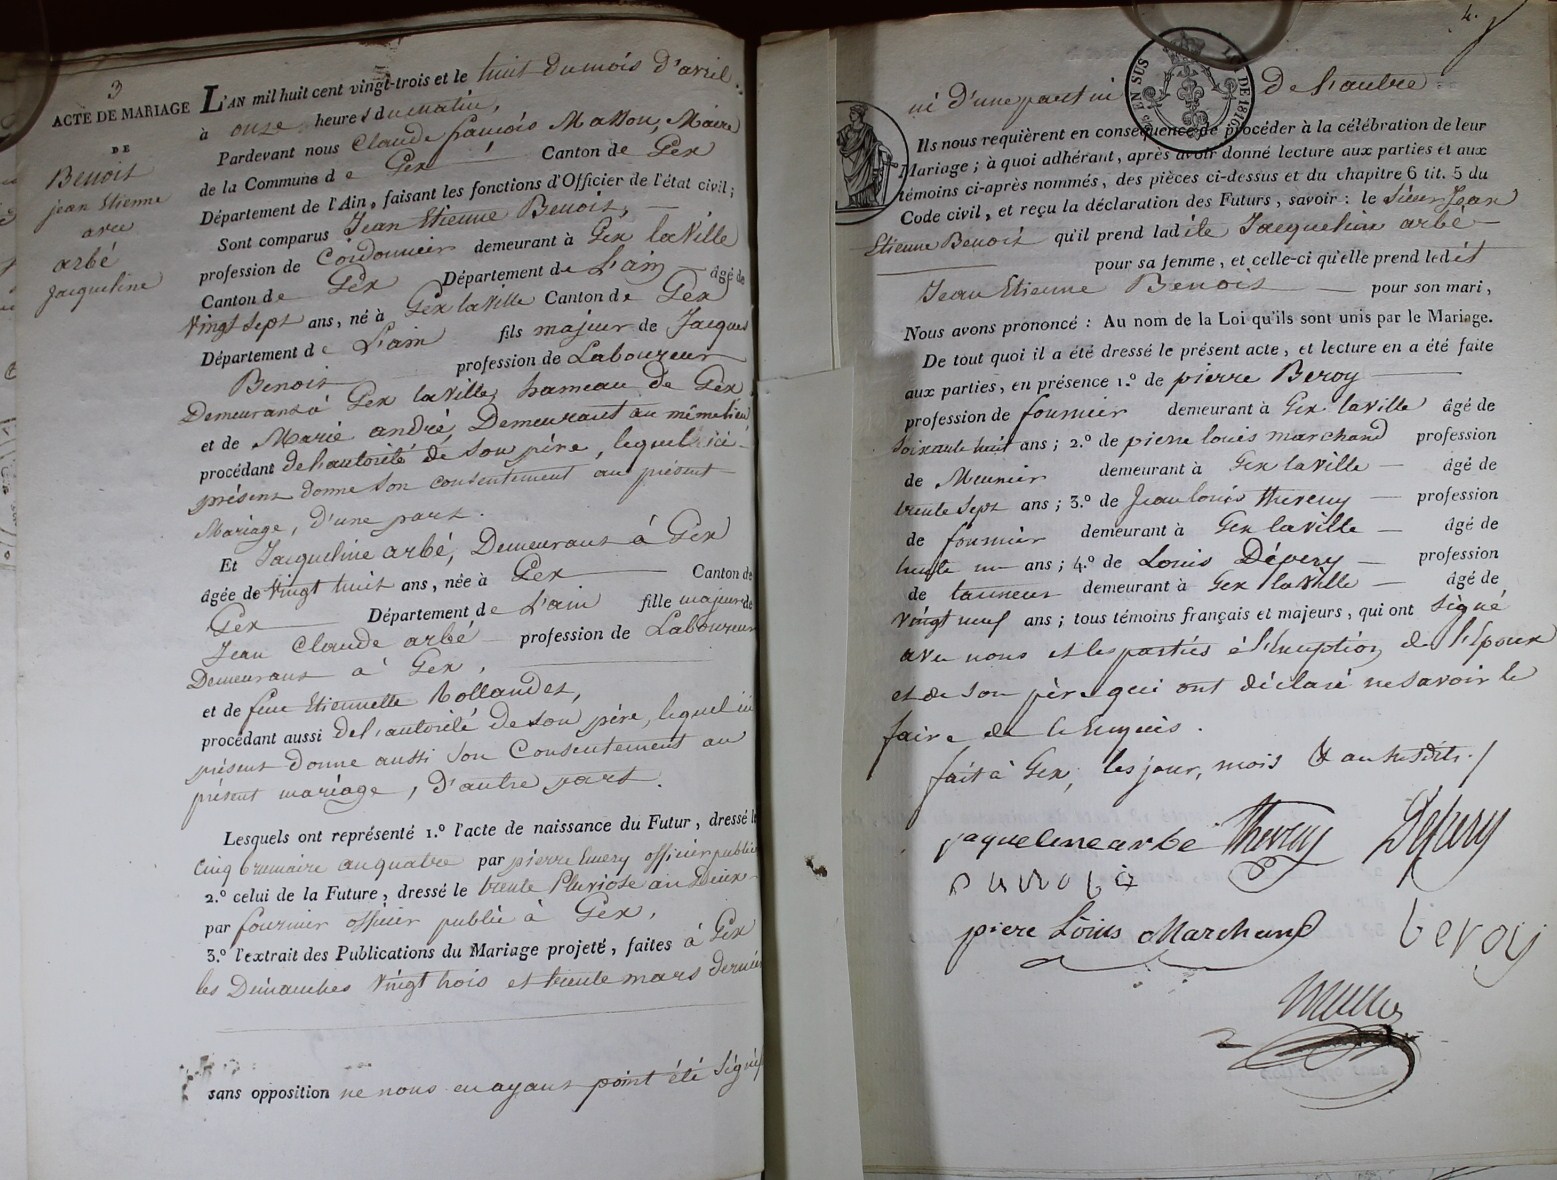 3
ACTE DE MARIAGE
DE
Benoit
jean Etienne
avec
arbé
Jacqueline
L'AN mil huit cent vingt-trois et le huit du mois d'avril
à onze heures du matin,
Pardevant nous Claude françois Maire
de la Commune de Gex Canton de Gex
Département de l'Ain, faisant les fonctions d'Officier de l'état civil;
Sont comparus Jean Etienne Benoit,
profession de Cordonnier demeurant à Gex la Ville
Canton de Gex Département de L'ain âgé de
Vingt Sept ans, né à Gex la Ville Canton de Gex
Département de L'ain fils majeur de Jacques
Benoit profession de Laboureur
Demeurant à Gex la Ville, hameau de Gex
et de Marie andré, Demeurant au même lieu
procédant de l'autorité de Son père, lequel ici
présent donne Son consentement au présent
Mariage, d'une part.
Et Jacqueline arbé, Demeurant à Gex
âgée de Vingt huit ans, née à Gex Canton de
Gex Département de L'ain fille majeure de
Jean Claude arbé profession de Laboureur
Demeurant à Gex,
et de feue Etiennette Rollandet,
procédant aussi de l'autorité de Son père, lequel ici
présent Donne aussi Son Consentement au
présent mariage, D'autre part.
Lesquels ont représenté 1.º l'acte de naissance du Futur, dressé le
Cinq brumaire an quatre par pierre Emery officier public
2.º celui de la Future, dressé le trente Pluviose an Deux
par fournier officier public à Gex,
3.º l'extrait des Publications du Mariage projeté, faites à Gex
les Dimanches Vingt trois et trente mars dernier
sans opposition ne nous en ayant point été Signifié
4.
ni d'une part ni de l'autre.
EN SUS
DE 1816
Ils nous requièrent en conséquence de procéder à la célébration de leur
Mariage; à quoi adhérant, après avoir donné lecture aux parties et aux
témoins ci-après nommés, des pièces ci-dessus et du chapitre 6 tit. 5 du
Code civil, et reçu la déclaration des Futurs, savoir: le Sieur Jean
Etienne Benoit qu'il prend ladite Jacqueline arbé
pour sa femme, et celle-ci qu'elle prend ledit
Jean Etienne Benoit pour son mari,
Nous avons prononcé: Au nom de la Loi qu'ils sont unis par le Mariage.
De tout quoi il a été dressé le présent acte, et lecture en a été faite
aux parties, en présence 1.º de pierre Beroy
profession de fournier demeurant à Gex la Ville âgé de
Soixante huit ans; 2.º de pierre louis marchand profession
de Meunier demeurant à Gex la Ville âgé de
trente Sept ans; 3.º de Jean louis thereny profession
de fournier demeurant à Gex la Ville âgé de
trente un ans; 4.º de Louis Dépery profession
de tanneur demeurant à Gex la Ville âgé de
Vingt neuf ans; tous témoins français et majeurs, qui ont Signé
avec nous et les parties à l'Exeuption de l'Epoux
et de Son père qui ont déclaré ne Savoir le
faire de ce Enquis.
fait à Gex, les jour, mois & an Susdits.
jaqueline arbe
Dépery
piere Louis Marchand
beroy